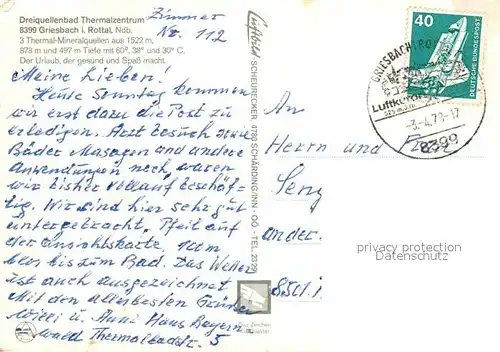 Dreiquellenbad Thermalzentrum
8399 Griesbach i. Rottal, Ndb.
3 Thermal-Mineralquellen aus 1522 m,
878 m und 497 m Tiefe mit 60°, 38° und 30° C.
Der Urlaub, der gesund und Spaß macht.
Zimmer
Nr. 112
Meine Lieben!
Heute Sonntag kommen
wir erst dazu die Post zu
erledigen. Arzt besuch
Bäder Masagen und andere
Anwendungen noch, waren
wir bisher vollauf beschäf-
tig. Wir sind hier sehr gut
untergebracht. Pfeil auf
der Ansichtskarte. 10 m
bis zum Bad. Das Wetter
ist auch ausgezeichnet
Mit den allerbesten Grüßen
Willi u. Anni Haus Bayern-
wald Thermalbadstr. 5
Luftbild
SCHEURECKER, 4780 SCHÄRDING/INN - OÖ - TEL. 2329
40
DEUTSCHE BUNDESPOST
GRIESBACH I RO
Luftkurort
-3.-4.79-17
8399
An
Herrn und
Seng
8501
privacy protection
watermark